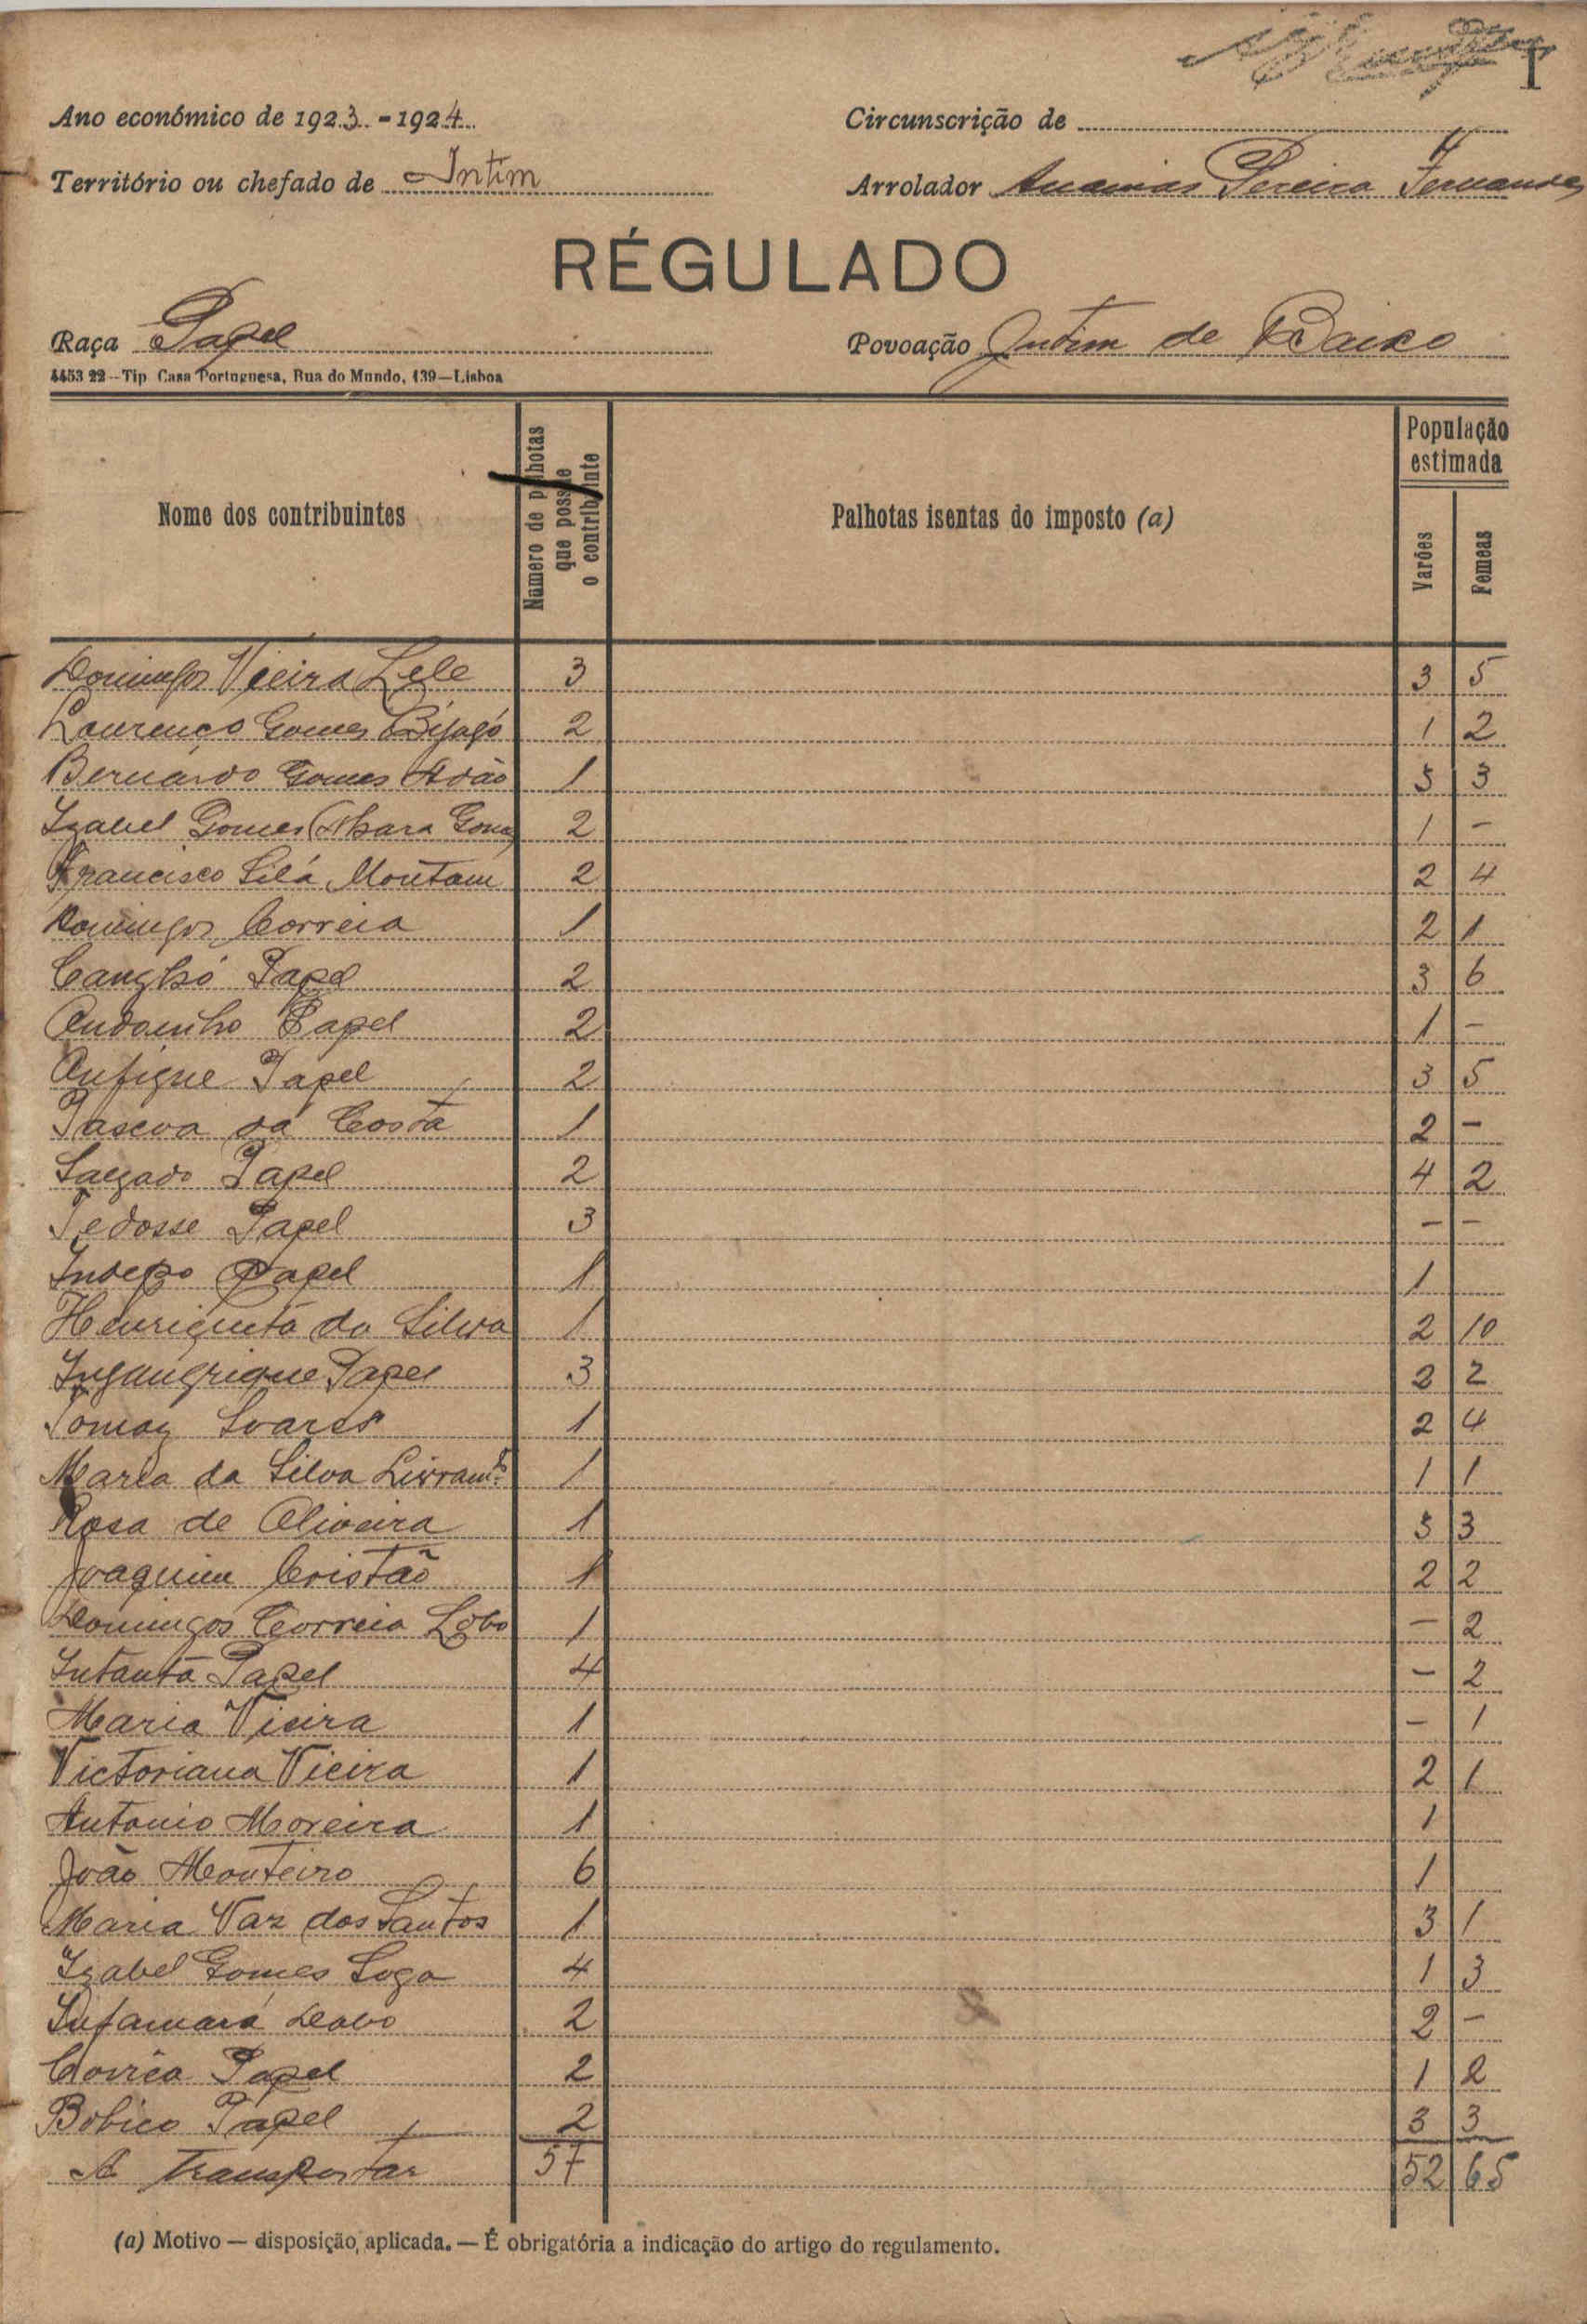 I
Ano económico de 1923-1924
Circunscrição de
Território ou chefado de Intim
Arrolador Ananias Pereira Fernandes
RÉGULADO
Raça Papel
Povoação Intim de Baixo
4453 22 — Tip. Casa Portuguesa, Rua do Mundo, 139 — Lisboa
Nome dos contribuintes
Número de palhotas que possue o contribuinte
Palhotas isentas do imposto (a)
População estimada
Varões
Femeas
Domingos Vieira Lele 3 3 5
Lourenço Gomes Bijagó 2 1 2
Bernardo Gomes Adão 1 3 3
Izabel Gomes 2 1 -
Francisco Silá Montam 2 2 4
Domingos Correia 1 2 1
Papel 2 3 6
Andoinho Papel 2 1 -
Anfigue Papel 2 3 5
Pascoa da Costa 1 2 -
Salgado Papel 2 4 2
Tedosse Papel 3 - -
Indepo Papel 1 1
Henriqueta da Silva 1 2 10
Papel 3 2 2
Tomaz Soares 1 2 4
Maria da Silva Livramto 1 1 1
Rosa de Oliveira 1 3 3
Joaquim Cristão 1 2 2
Domingos Correia Lobo 1 - 2
Intanta Papel 4 - 2
Maria Vieira 1 - 1
Victoriana Vieira 1 2 1
Antonio Moreira 1 1
João Monteiro 6 1
Maria Vaz dos Santos 1 3 1
Izabel Gomes Soga 4 1 3
Infamará 2 2 -
Corrêa Papel 2 1 2
Bobico Papel 2 3 3
A Transportar 57 52 65
(a) Motivo — disposição, aplicada. — É obrigatória a indicação do artigo do regulamento.